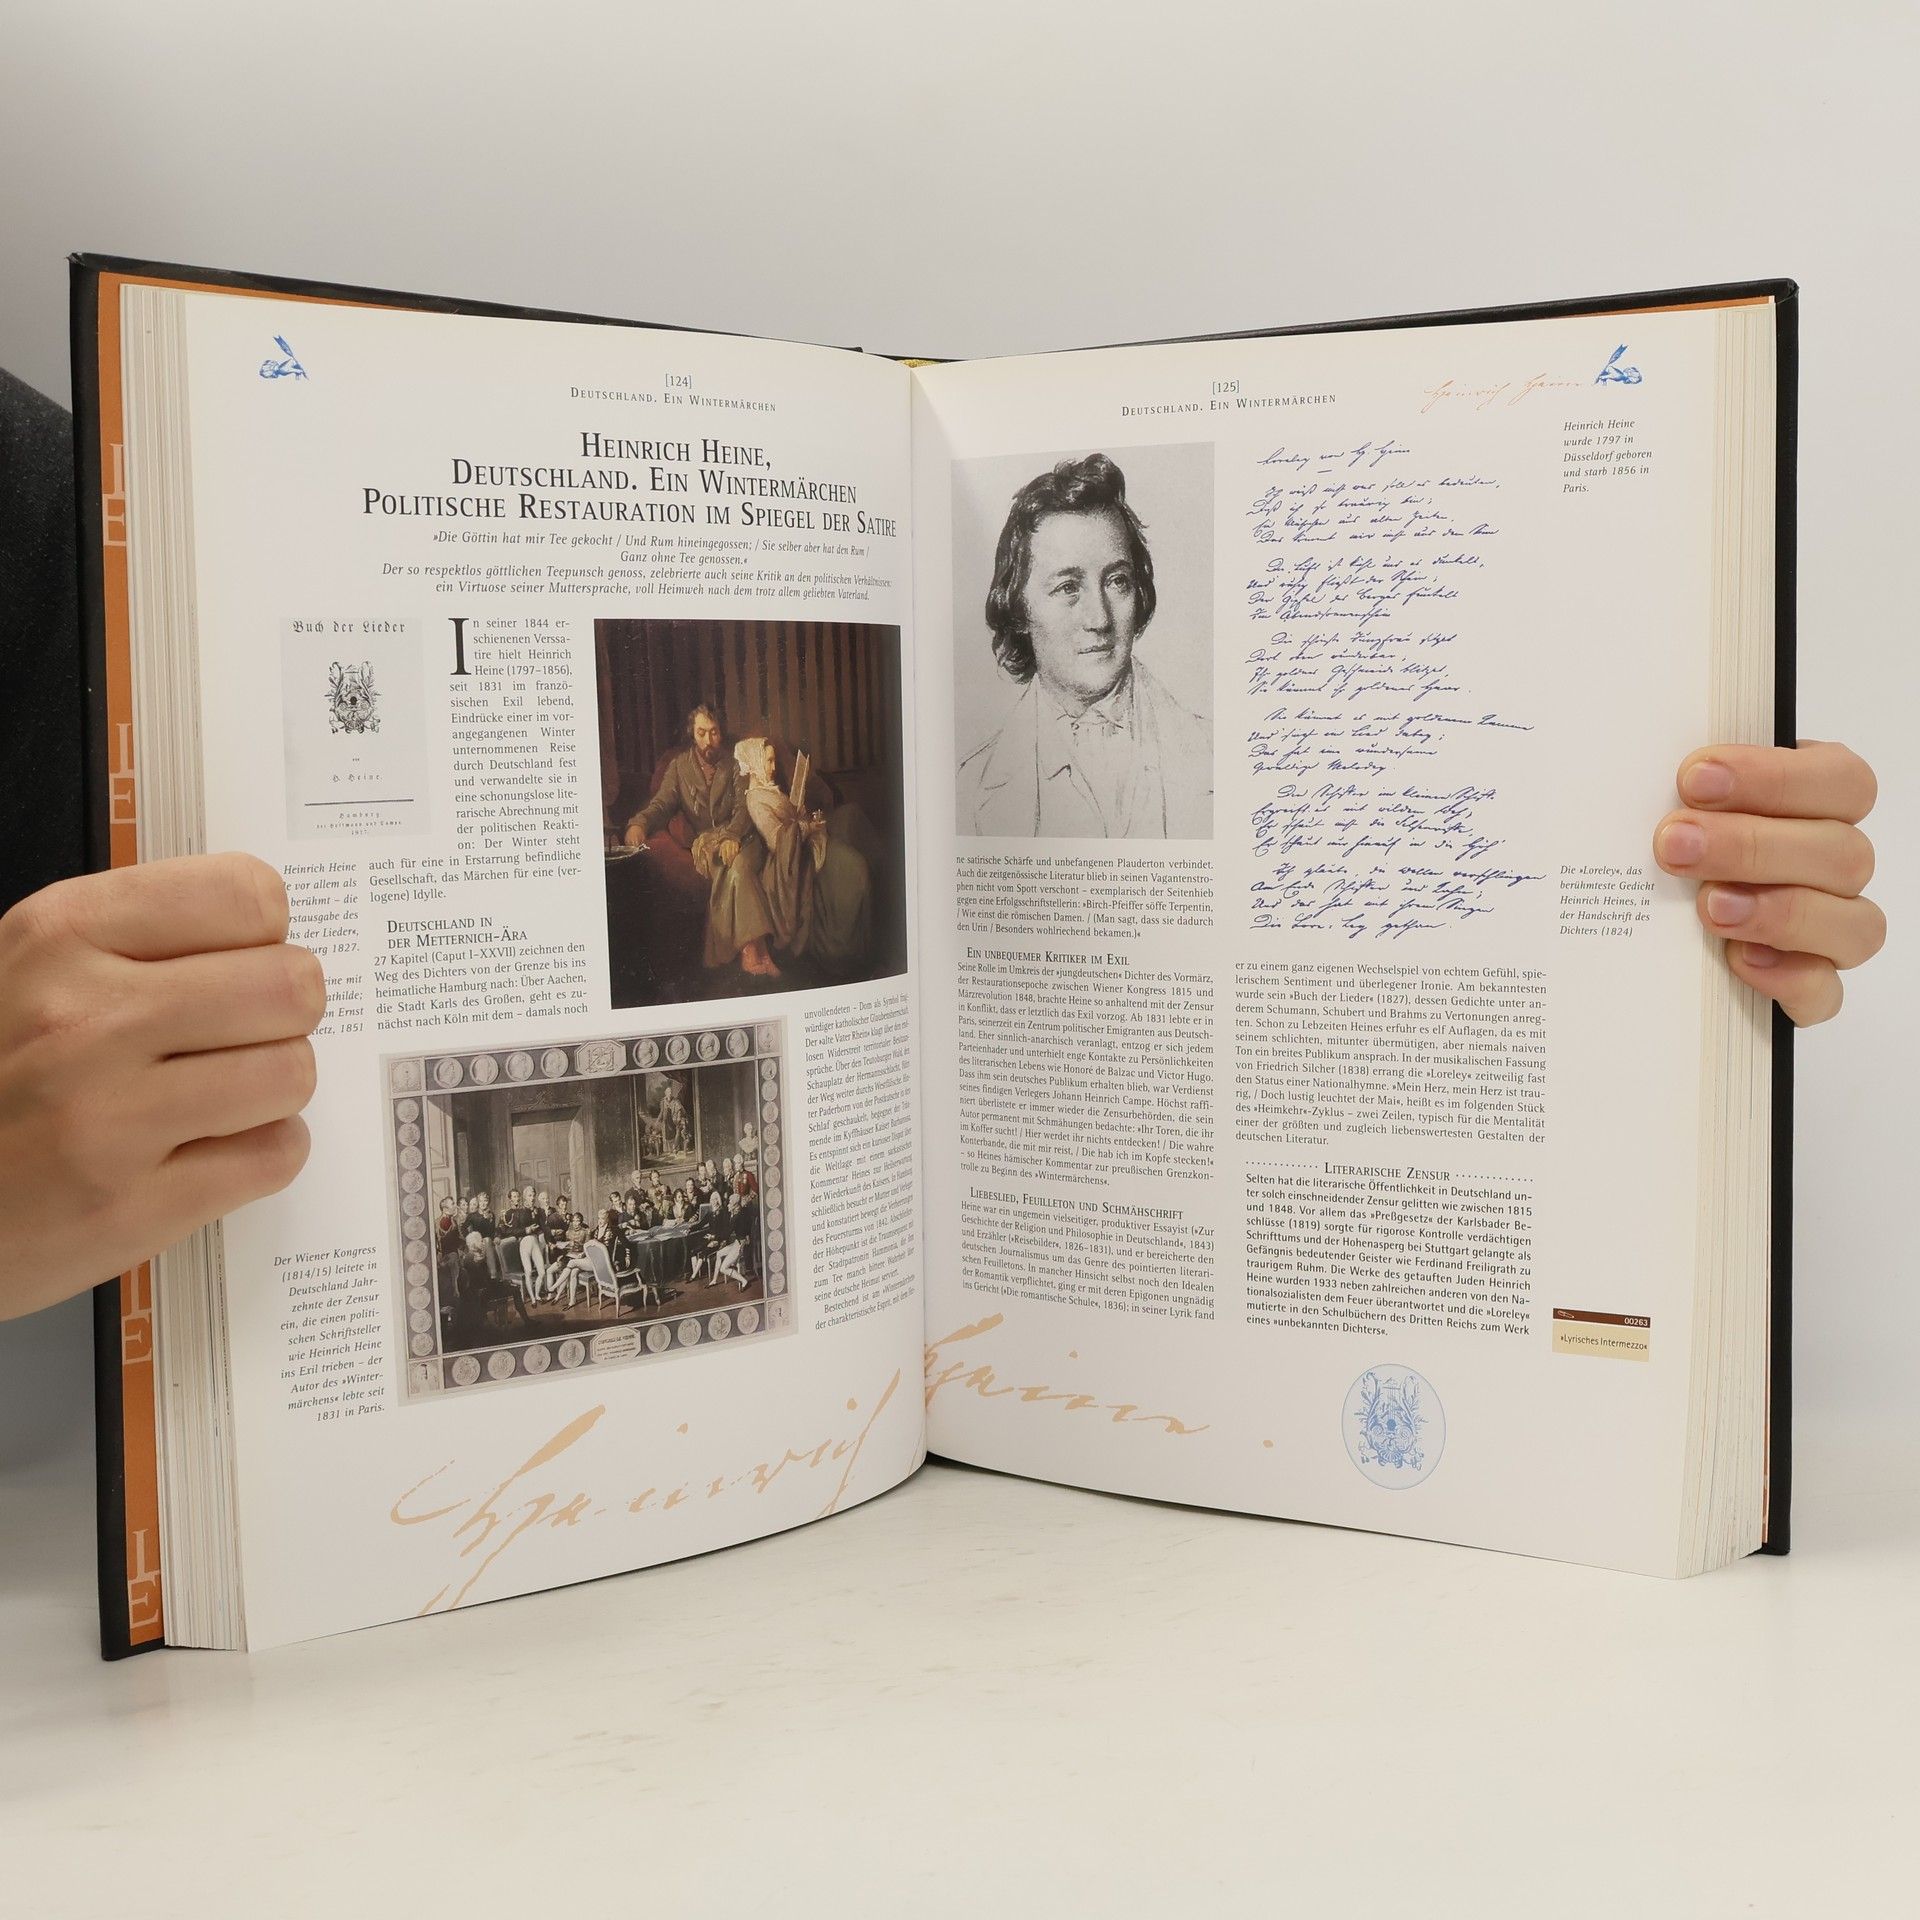 [124]
DEUTSCHLAND. EIN WINTERMÄRCHEN
HEINRICH HEINE,
DEUTSCHLAND. EIN WINTERMÄRCHEN
POLITISCHE RESTAURATION IM SPIEGEL DER SATIRE
»Die Göttin hat mir Tee gekocht / Und Rum hineingegossen; / Sie selber aber hat den Rum /
Ganz ohne Tee genossen.«
Der so respektlos göttlichen Teepunsch genoss, zelebrierte auch seine Kritik an den politischen Verhältnissen:
ein Virtuose seiner Muttersprache, voll Heimweh nach dem trotz allem geliebten Vaterland.
Buch der Lieder
von
H. Heine.
Hamburg
bei Hoffmann und Campe.
1827.
In seiner 1844 er-
schienenen Verssa-
tire hielt Heinrich
Heine (1797–1856),
seit 1831 im franzö-
sischen Exil lebend,
Eindrücke einer im vor-
angegangenen Winter
unternommenen Reise
durch Deutschland fest
und verwandelte sie in
eine schonungslose lite-
rarische Abrechnung mit
der politischen Reakti-
on: Der Winter steht
auch für eine in Erstarrung befindliche
Gesellschaft, das Märchen für eine (ver-
logene) Idylle.
DEUTSCHLAND IN
DER METTERNICH-ÄRA
27 Kapitel (Caput I–XXVII) zeichnen den
Weg des Dichters von der Grenze bis ins
heimatliche Hamburg nach: Über Aachen,
die Stadt Karls des Großen, geht es zu-
nächst nach Köln mit dem – damals noch
Heinrich Heine
vor allem als
berühmt – die
rstausgabe des
hs der Lieder«,
burg 1827.
eine mit
athilde;
on Ernst
ietz, 1851
Der Wiener Kongress
(1814/15) leitete in
Deutschland Jahr-
zehnte der Zensur
ein, die einen politi-
schen Schriftsteller
wie Heinrich Heine
ins Exil trieben – der
Autor des »Winter-
märchens« lebte seit
1831 in Paris.
unvollendeten – Dom als Symbol frag-
würdiger katholischer Glaubensherrschaft.
Der »alte Vater Rhein« klagt über den end-
losen Widerstreit territorialer Besitzan-
sprüche. Über den Teutoburger Wald, den
Schauplatz der Hermannsschlacht, führt
der Weg weiter durchs Westfälische. Hin-
ter Paderborn von der Postkutsche in den
Schlaf geschaukelt, begegnet der Träu-
mende im Kyffhäuser Kaiser Barbarossa.
Es entspinnt sich ein kurioser Disput über
die Weltlage mit einem sarkastischen
Kommentar Heines zur Heilserwartung
der Wiederkunft des Kaisers. In Hamburg
schließlich besucht er Mutter und Verleger
und konstatiert bewegt die Verheerungen
des Feuersturms von 1842. Abschließen-
der Höhepunkt ist die Traumvision mit
der Stadtpatronin Hammonia, die ihm
zum Tee manch bittere Wahrheit über
seine deutsche Heimat serviert.
Bestechend ist am »Wintermärchen«
der charakteristische Esprit, mit dem Hei-
Heinrich Heine.
[125]
DEUTSCHLAND. EIN WINTERMÄRCHEN
Heinrich Heine
Heinrich Heine
wurde 1797 in
Düsseldorf geboren
und starb 1856 in
Paris.
Loreley von H. Heine
Ich weiß nicht was soll es bedeuten,
Daß ich so traurig bin;
Ein Märchen aus alten Zeiten,
Das kommt mir nicht aus dem Sinn
Die Luft ist kühl und es dunkelt,
Und ruhig fließt der Rhein;
Der Gipfel des Berges funkelt
Im Abendsonnenschein
Die schönste Jungfrau sitzet
Dort oben wunderbar,
Ihr goldnes Geschmeide blitzet,
Sie kämmt ihr goldenes Haar.
Sie kämmt es mit goldenem Kamme
Und singt ein Lied dabey;
Das hat eine wundersame
Gewaltige Melodey.
Den Schiffer im kleinen Schiffe
Ergreift es mit wildem Weh;
Er schaut nicht die Felsenriffe,
Er schaut nur hinauf in die Höh'
Ich glaube, die Wellen verschlingen
Am Ende Schiffer und Kahn;
Und das hat mit ihrem Singen
Die Lore-Ley gethan.
Die »Loreley«, das
berühmteste Gedicht
Heinrich Heines, in
der Handschrift des
Dichters (1824)
ne satirische Schärfe und unbefangenen Plauderton verbindet.
Auch die zeitgenössische Literatur blieb in seinen Vagantenstro-
phen nicht vom Spott verschont – exemplarisch der Seitenhieb
gegen eine Erfolgsschriftstellerin: »Birch-Pfeiffer söffe Terpentin,
/ Wie einst die römischen Damen. / (Man sagt, dass sie dadurch
den Urin / Besonders wohlriechend bekamen.)«
EIN UNBEQUEMER KRITIKER IM EXIL
Seine Rolle im Umkreis der »jungdeutschen« Dichter des Vormärz,
der Restaurationsepoche zwischen Wiener Kongress 1815 und
Märzrevolution 1848, brachte Heine so anhaltend mit der Zensur
in Konflikt, dass er letztlich das Exil vorzog. Ab 1831 lebte er in
Paris, seinerzeit ein Zentrum politischer Emigranten aus Deutsch-
land. Eher sinnlich-anarchisch veranlagt, entzog er sich jedem
Parteienhader und unterhielt enge Kontakte zu Persönlichkeiten
des literarischen Lebens wie Honoré de Balzac und Victor Hugo.
Dass ihm sein deutsches Publikum erhalten blieb, war Verdienst
seines findigen Verlegers Johann Heinrich Campe. Höchst raffi-
niert überlistete er immer wieder die Zensurbehörden, die sein
Autor permanent mit Schmähungen bedachte: »Ihr Toren, die ihr
im Koffer sucht! / Hier werdet ihr nichts entdecken! / Die wahre
Konterbande, die mit mir reist, / Die hab ich im Kopfe stecken!«
– so Heines hämischer Kommentar zur preußischen Grenzkon-
trolle zu Beginn des »Wintermärchens«.
LIEBESLIED, FEUILLETON UND SCHMÄHSCHRIFT
Heine war ein ungemein vielseitiger, produktiver Essayist (»Zur
Geschichte der Religion und Philosophie in Deutschland«, 1843)
und Erzähler (»Reisebilder«, 1826–1831), und er bereicherte den
deutschen Journalismus um das Genre des pointierten literari-
schen Feuilletons. In mancher Hinsicht selbst noch den Idealen
der Romantik verpflichtet, ging er mit deren Epigonen ungnädig
ins Gericht (»Die romantische Schule«, 1836); in seiner Lyrik fand
er zu einem ganz eigenen Wechselspiel von echtem Gefühl, spie-
lerischem Sentiment und überlegener Ironie. Am bekanntesten
wurde sein »Buch der Lieder« (1827), dessen Gedichte unter an-
derem Schumann, Schubert und Brahms zu Vertonungen anreg-
ten. Schon zu Lebzeiten Heines erfuhr es elf Auflagen, da es mit
seinem schlichten, mitunter übermütigen, aber niemals naiven
Ton ein breites Publikum ansprach. In der musikalischen Fassung
von Friedrich Silcher (1838) errang die »Loreley« zeitweilig fast
den Status einer Nationalhymne. »Mein Herz, mein Herz ist trau-
rig, / Doch lustig leuchtet der Mai«, heißt es im folgenden Stück
des »Heimkehr«-Zyklus – zwei Zeilen, typisch für die Mentalität
einer der größten und zugleich liebenswertesten Gestalten der
deutschen Literatur.
LITERARISCHE ZENSUR
Selten hat die literarische Öffentlichkeit in Deutschland un-
ter solch einschneidender Zensur gelitten wie zwischen 1815
und 1848. Vor allem das »Preßgesetz« der Karlsbader Be-
schlüsse (1819) sorgte für rigorose Kontrolle verdächtigen
Schrifttums und der Hohenasperg bei Stuttgart gelangte als
Gefängnis bedeutender Geister wie Ferdinand Freiligrath zu
traurigem Ruhm. Die Werke des getauften Juden Heinrich
Heine wurden 1933 neben zahlreichen anderen von den Na-
tionalsozialisten dem Feuer überantwortet und die »Loreley«
mutierte in den Schulbüchern des Dritten Reichs zum Werk
eines »unbekannten Dichters«.
00263
»Lyrisches Intermezzo«